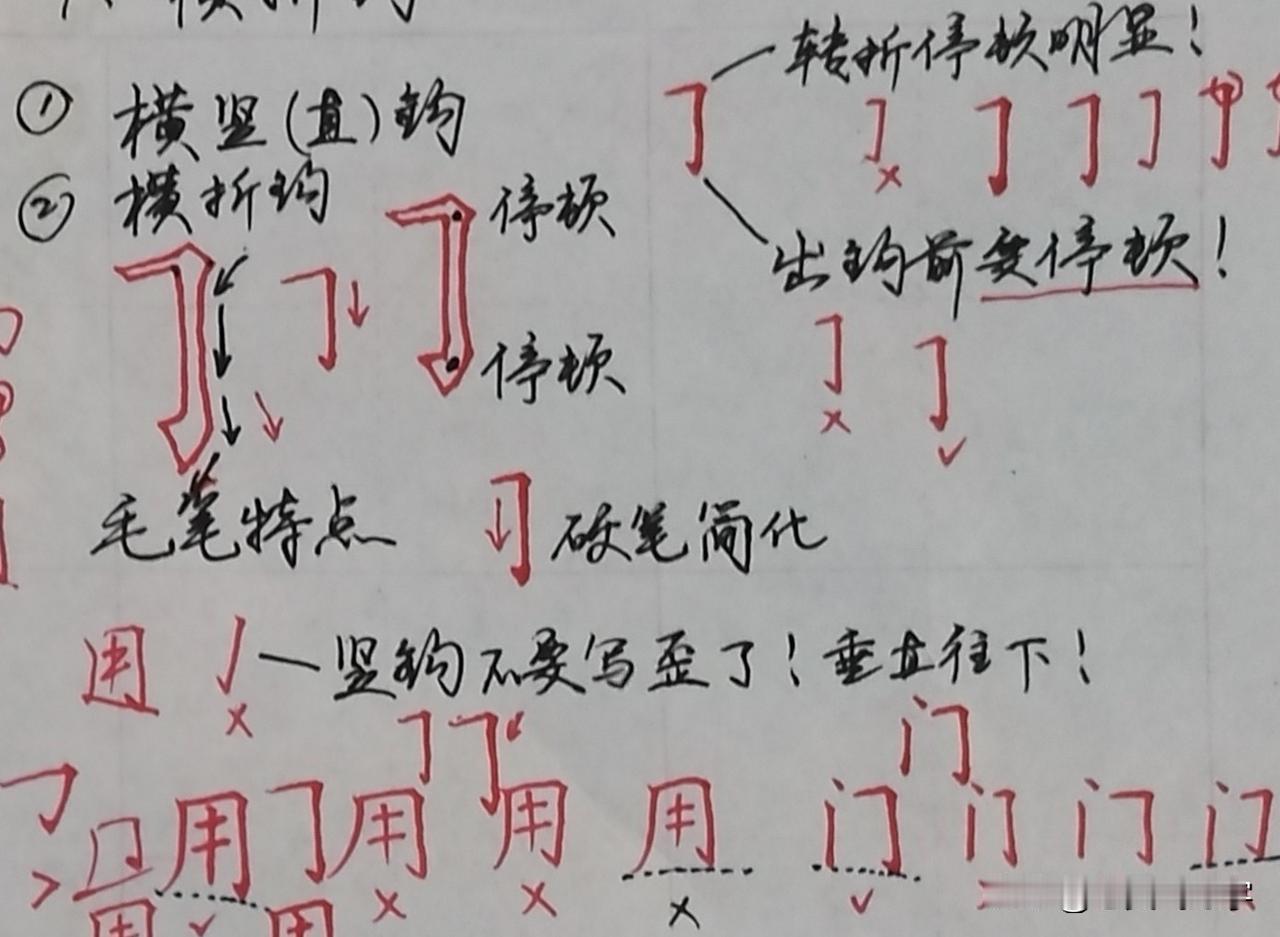 横折钩
一转折停顿明显！
① 横竖(直)钩
② 横折钩
停顿
出钩前要停顿！
停顿
毛笔特点
硬笔简化
用 一竖钩不要写歪了！垂直往下！
门
用 用 用 用 门 门 门 门
用 用